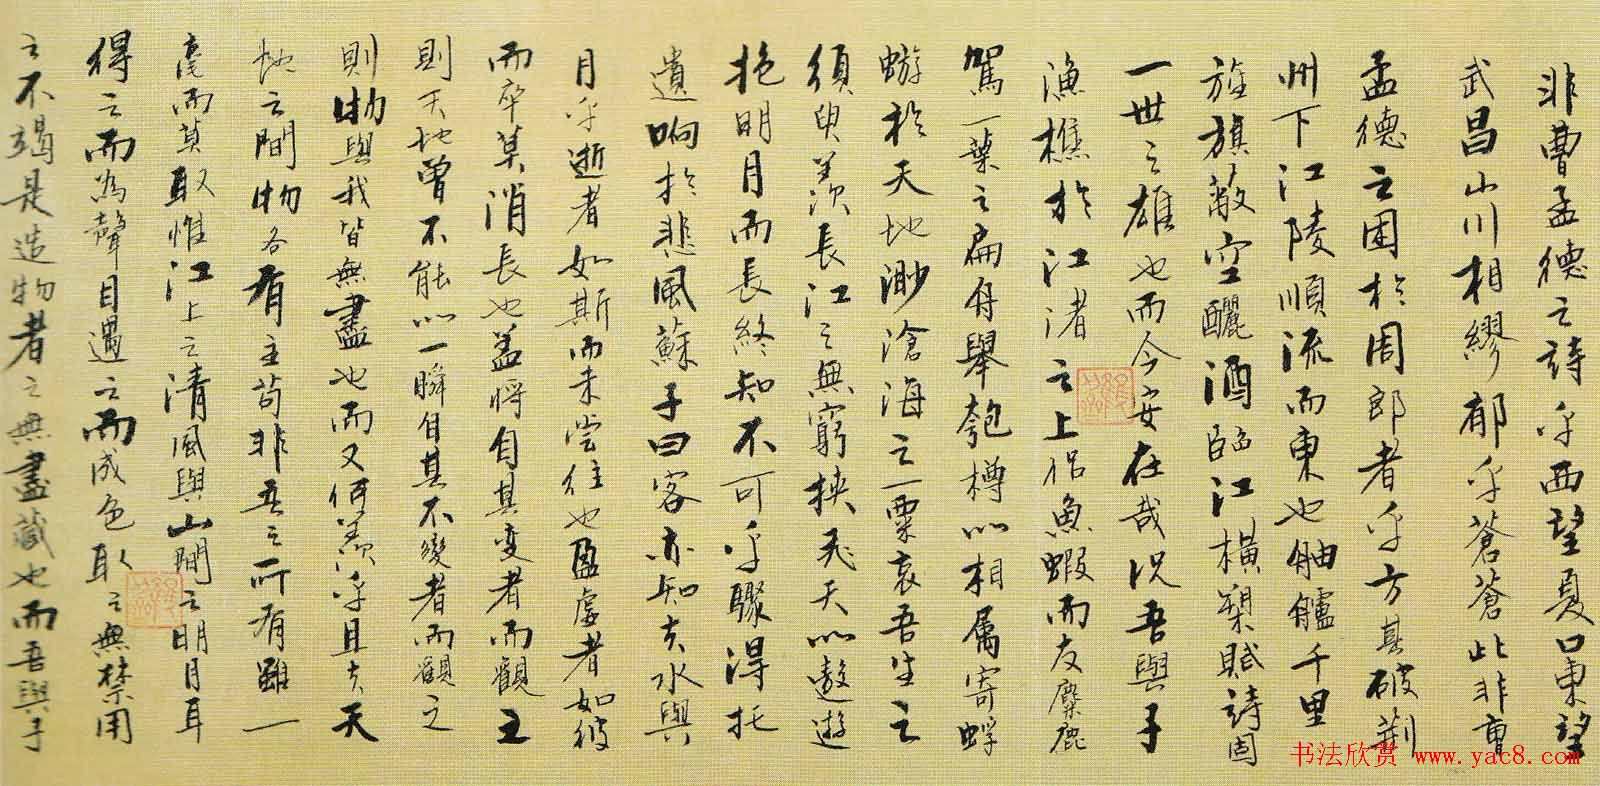 非曹孟德之詩乎西望夏口東望
武昌山川相繆郁乎蒼蒼此非曹
孟德之困於周郎者乎方其破荆
州下江陵順流而東也舳艫千里
旌旗蔽空釃酒臨江橫槊賦詩固
一世之雄也而今安在哉況吾與子
漁樵於江渚之上侶魚蝦而友麋鹿
駕一葉之扁舟舉匏樽以相屬寄蜉
蝣於天地渺滄海之一粟哀吾生之
須臾羨長江之無窮挾飛天以遨遊
抱明月而長終知不可乎驟得托
遺响於悲風蘇子曰客亦知夫水與
月乎逝者如斯而未嘗往也盈虛者如彼
而卒莫消長也盖將自其变者而觀之
則天地曾不能以一瞬自其不變者而觀之
則物與我皆無盡也而又何羨乎且夫天
地之間物各有主苟非吾之所有雖一
毫而莫取惟江上之清風與山間之明月耳
得之而為聲目遇之而成色取之無禁用
之不竭是造物者之無盡藏也而吾與子
书法欣赏 www.yac8.com